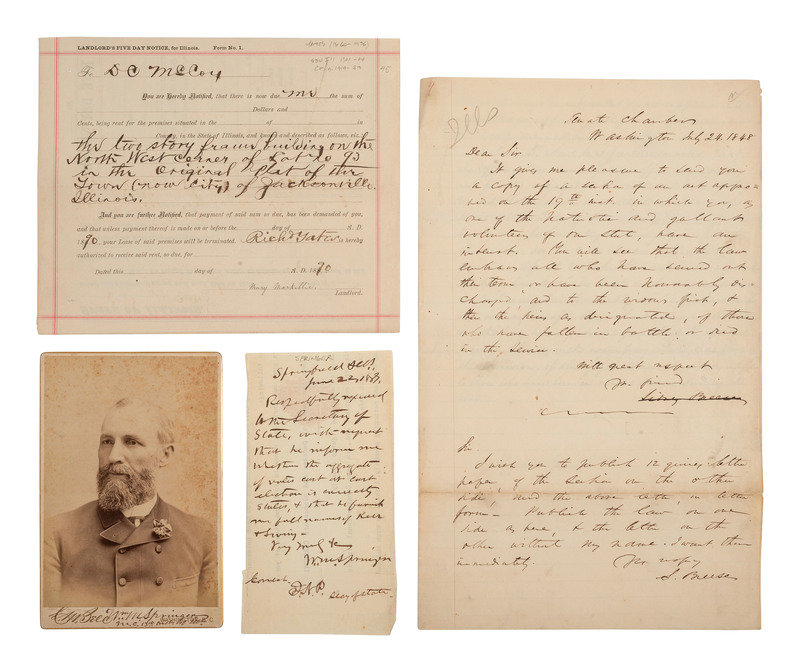 LANDLORD'S FIVE DAY NOTICE, for Illinois. Form No. 1.
To D C McCoy
You are Hereby Notified, that there is now due me the sum of
Dollars and
Cents, being rent for the premises situated in the of in
County, in the State of Illinois, and known and described as follows, viz:
the two story frame building on the
North West Corner of Lot No 93
in the Original Plat of the
Town (now City) of Jacksonville
Illinois.
And you are further Notified, that payment of said sum so due, has been demanded of you,
and that unless payment thereof is made on or before the day of A. D.
1890, your Lease of said premises will be terminated. Richd Yates is hereby
authorized to receive said rent, so due, for
Dated this day of A. D. 1890
Mary
Landlord.
Senate Chamber
Washington July 24. 1848
Dear Sir
It gives me pleasure to send you
a copy of a section of an act appro
ved on the 19th inst. in which you, as
one of the patriotic and gallant
volunteers of our state, have an
interest. You will see that the law
embraces all who have served out
their term or have been honorably dis-
charged, and to the widows first, &
then the heirs as designated, of those
who have fallen in battle or died
in the service.
With great respect
Yr. friend
Sidney Breese
Sir.
I wish you to publish 12 quires letter
paper, of the section on the other
side, and the above letter, in letter
form - Publish the law on one
side as here, & the letter on the
other without my name. I want them
immediately.
S. Breese
SPRINGER
Springfield Ills.
June 22, 18
Respectfully referred
to the Secretary of
State, with request
that he inform me
whether the aggregate
of votes cast at last
election is correctly
stated, & that he furnish
me full names of
&
Very truly &c
Wm M Springer
Correct.
Secy of State
Wm M Springer